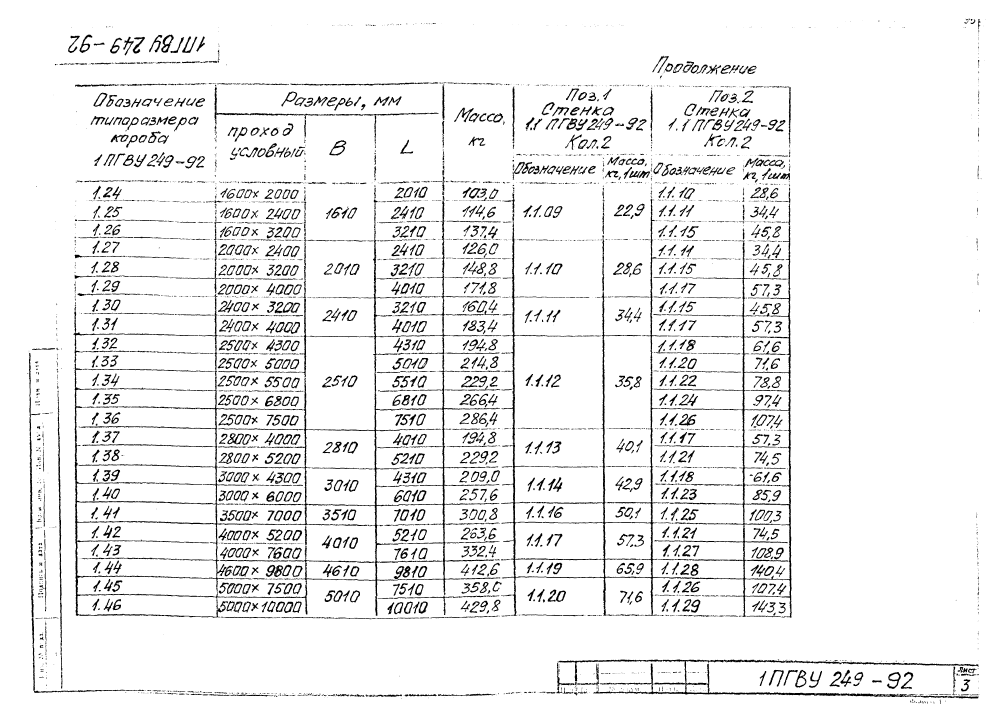 1ПГВУ 249-92
Продолжение
Обозначение типоразмера короба 1ПГВУ249-92 | Размеры, мм | Масса, кг | Поз.1 Стенка 1.1 ПГВУ249-92 Кол.2 | Поз.2 Стенка 1.1 ПГВУ249-92 Кол.2
проход условный | B | L | Обозначение | Масса, кг, 1шт | Обозначение | Масса, кг, 1шт
1.24 1600×2000 2010 103,0 1.1.10 28,6
1.25 1600×2400 1610 2410 114,6 1.1.09 22,9 1.1.11 34,4
1.26 1600×3200 3210 137,4 1.1.15 45,8
1.27 2000×2400 2410 126,0 1.1.11 34,4
1.28 2000×3200 2010 3210 148,8 1.1.10 28,6 1.1.15 45,8
1.29 2000×4000 4010 171,8 1.1.17 57,3
1.30 2400×3200 2410 3210 160,4 1.1.11 34,4 1.1.15 45,8
1.31 2400×4000 4010 183,4 1.1.17 57,3
1.32 2500×4300 4310 194,8 1.1.18 61,6
1.33 2500×5000 5010 214,8 1.1.20 71,6
1.34 2500×5500 2510 5510 229,2 1.1.12 35,8 1.1.22 78,8
1.35 2500×6800 6810 266,4 1.1.24 97,4
1.36 2500×7500 7510 286,4 1.1.26 107,4
1.37 2800×4000 2810 4010 194,8 1.1.13 40,1 1.1.17 57,3
1.38 2800×5200 5210 229,2 1.1.21 74,5
1.39 3000×4300 3010 4310 209,0 1.1.14 42,9 1.1.18 61,6
1.40 3000×6000 6010 257,6 1.1.23 85,9
1.41 3500×7000 3510 7010 300,8 1.1.16 50,1 1.1.25 100,3
1.42 4000×5200 4010 5210 263,6 1.1.17 57,3 1.1.21 74,5
1.43 4000×7600 7610 332,4 1.1.27 108,9
1.44 4600×9800 4610 9810 412,6 1.1.19 65,9 1.1.28 140,4
1.45 5000×7500 5010 7510 358,0 1.1.20 71,6 1.1.26 107,4
1.46 5000×10000 10010 429,8 1.1.29 143,3
1ПГВУ 249-92
Лист
3